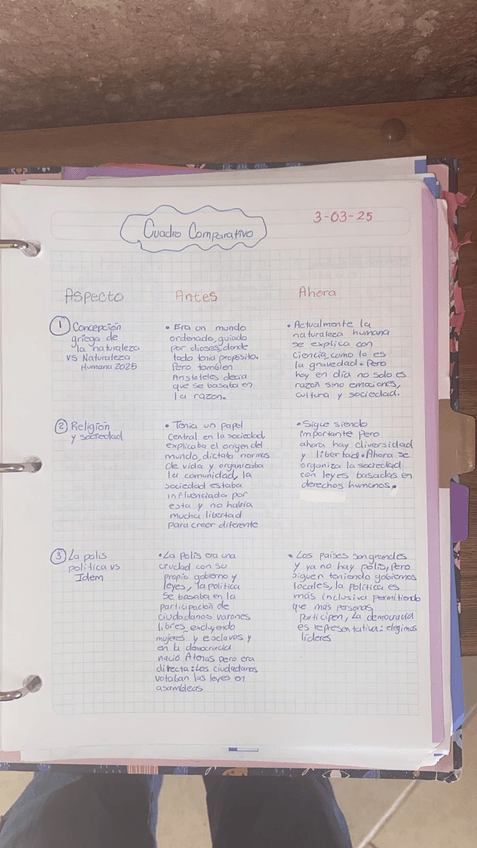 Cuadro Comparativo
3-03-25
Aspecto
Antes
Ahora
1 Concepción
griega de
la naturaleza
vs Naturaleza
Humana 2025
• Era un mundo
ordenado, guiado
por dioses, donde
todo tenia propósito.
Pero tambien
Aristoteles decia
que se basaba en
la razon.
• Actualmente la
naturaleza humana
se explica con
ciencia, como lo es
la gravedad. Pero
hoy en día no solo es
razon sino emociones,
cultura y sociedad.
2 Religión
y sociedad
• Tenia un papel
central en la sociedad
explicaba el origen del
mundo, dictaba normas
de vida y organizaba
la comunidad, la
sociedad estaba
influenciada por
esta y no habia
mucha libertad
para creer diferente
• Sigue siendo
importante pero
ahora hay diversidad
y libertad. Ahora se
organiza la sociedad
con leyes basadas en
derechos humanos.
3 La polis
politica vs
Idem
• La Polis era una
ciudad con su
propio gobierno y
leyes, la politica
se basaba en la
participación de
ciudadanos varones
libres, excluyendo
mujeres y esclavos y
en la democracia
nació Atenas pero era
directa: Los ciudadanos
votaban las leyes en
asambleas
• Los países son grandes
y ya no hay polis, pero
siguen teniendo gobiernos
locales, la politica es
más inclusiva permitiendo
que más personas
participen, La democracia
es representativa: elegimos
líderes